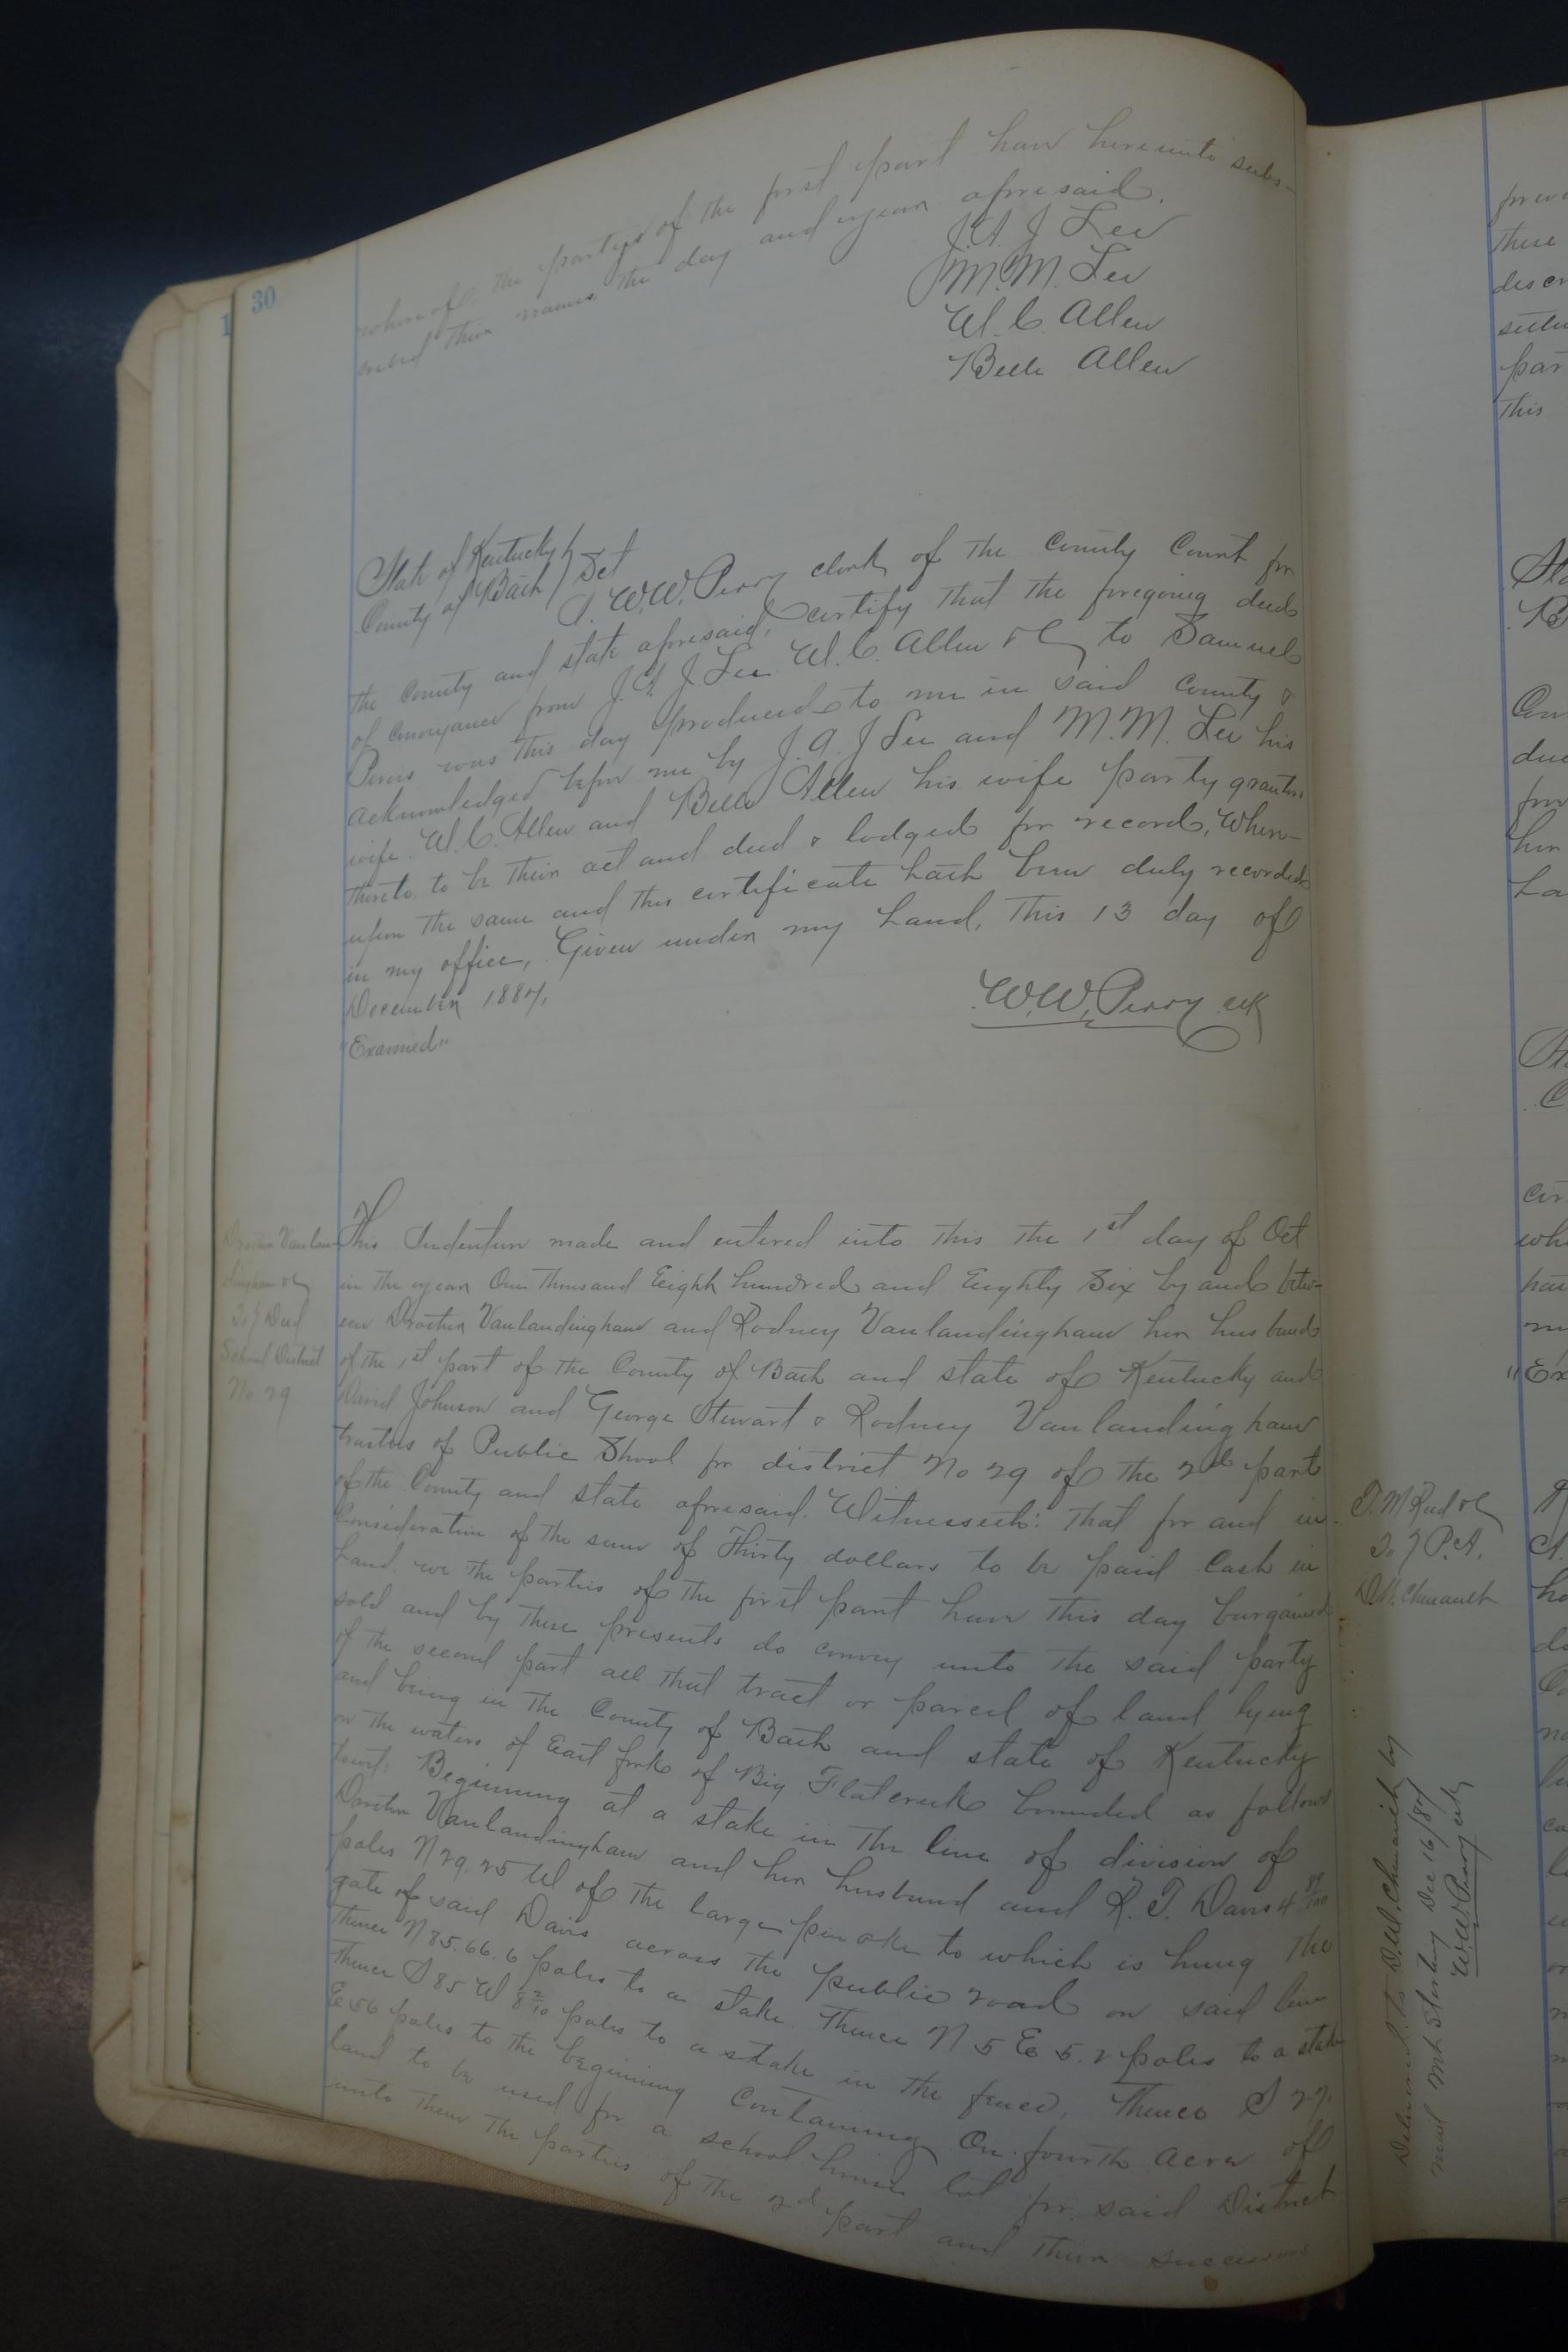 30
1
whereof the parties of the first part have hereunto subs-
cribed their names the day and year aforesaid.
J. A. J Lee
M. M. Lee
W. C. Allen
Belle Allen
State of Kentucky
County of Bath Sct
I W.W. Perry clerk of the County Court for
the County and state aforesaid, certify that the foregoing deed
of Conveyance from J. A. J Lee W. C. Allen &c to Samuel
was this day produced to me in said County &
acknowledged before me by J. A. J Lee and M. M. Lee his
wife. W. C. Allen and Belle Allen his wife party grantors
thereto to be their act and deed & lodged for record, Where-
upon the same and this certificate hath been duly recorded
in my office, Given under my hand, this 13 day of
December 1887,
W.W. Perry clk
"Examined"
Vanlan-
dingham &c
To } Deed
School District
No. 29
This Indenture made and entered into this the 1st day of Oct
in the year One Thousand Eight hundred and Eighty Six by and betw-
een Vanlandingham and Rodney Vanlandingham her husband
of the 1st part of the County of Bath and state of Kentucky and
David Johnson and George Stewart & Rodney Vanlandingham
trustees of Public Shool for district No 29 of the 2d part
of the County and state aforesaid. Witnesseth: That for and in
Consideration of the sum of Thirty dollars to be paid Cash in
hand we the parties of the first part have this day bargained
sold and by these presents do convey unto the said party
of the second part all that tract or parcel of land lying
and being in the County of Bath and state of Kentucky
on the waters of East fork of Big Flatcreek bounded as follows
towit: Beginning at a stake in the line of division of
Vanlandingham and her husband and R. T. Davis 4 87/100
poles N 29.25 W of the large pin oke to which is hung the
gate of said Davis across the public road on said line
Thence N 85.66.6 poles to a stake. Thence N 5 E 5.2 poles to a stake
Thence S 85 W 8 2/10 poles to a stake in the fence, Thence S 27
E 56 poles to the beginning Containing One fourth acre of
land to be used for a school house lot for said District
unto them the parties of the 2d part and their successors
T. M Reed &c
To } P.A.
D.W. Chenault
Delivered to D.W. Chenault by
mail Mt. Sterling Dec 16/87
W.W. Perry clk
these
descr
par
this
Sta
due
for
her
ha
Sta
C
cer
whe
hav
"Ex